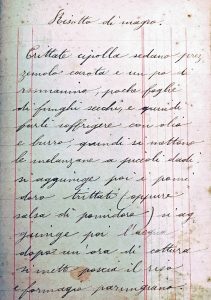 Risotto di magro.
Trittate cipolla sedano prez
zemolo carota e un po di
ramarino, poche foglie
di funghi secchi, e quindi
farli soffrigere con olio
e burro, quindi se mettono
le melanzane a piccoli dadi
si aggiunge poi i pomi
doro trittati (oppure
salsa di pomidoro) si ag
giunge poi l'acqua
dopo un'ora di cottura
si mette poscia il riso
e formaggio parmigiano.